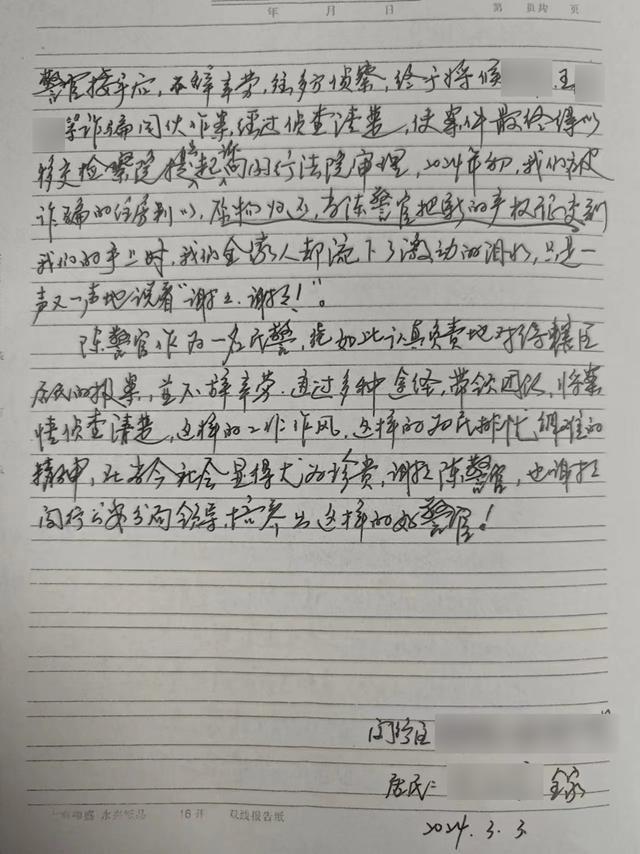 年 月 日 第 页共 页
警官接手后，不辞辛劳，经多方侦察，终于将候 王
等诈骗团伙作案，经过侦查清楚，使案件最终得以
移交检察院提起公诉向闵行法院审理，2024年初，我们被
诈骗的住房判以，原物归还，当陈警官把新的产权证交到
我们的手上时，我们全家人都流下了激动的泪水，只是一
声又一声地说着“谢谢、谢谢！”。
陈警官作为一名民警，能如此认真负责地对待辖区
居民的报案，并不辞辛劳、通过多种途经，带领团队，将案
情侦查清楚，这样的工作作风，这样的为民排忧解难的
精神，在当今社会显得尤为珍贵，谢谢陈警官，也谢谢
闵行公安分局领导，培养出这样的好警官！
闵行区
居民： 全家
2024.3.3
16开 双线报告纸